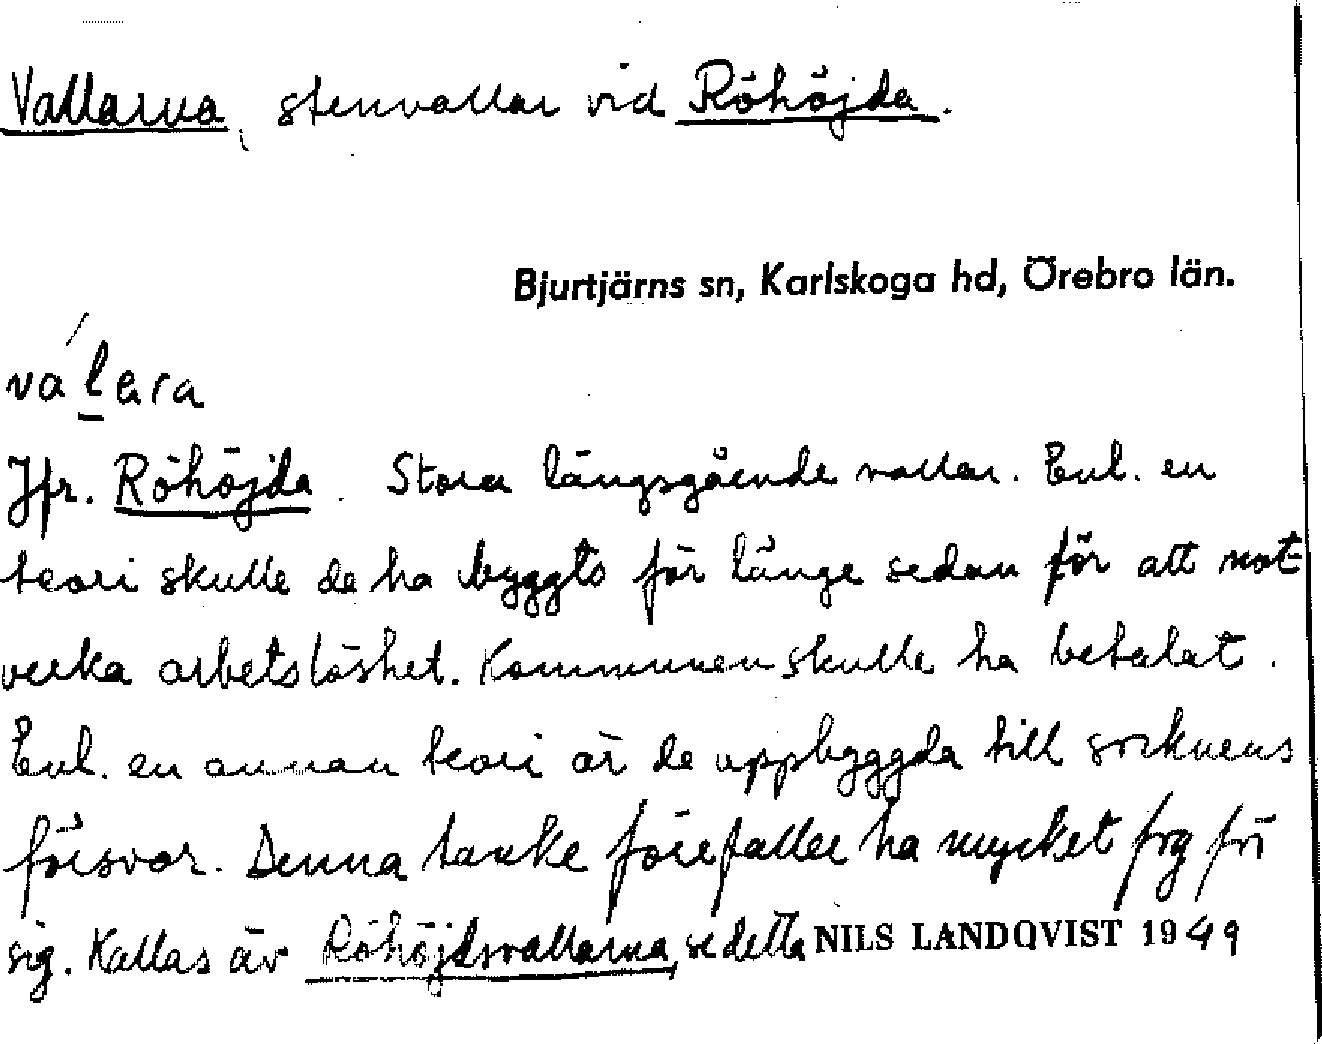 Vallarna, stenvallar vid Röhöjda.
Bjurtjärns sn, Karlskoga hd, Örebro län.
válara
Jfr. Röhöjda. Stora långsgående vallar. Enl. en
teori skulle de ha byggts för länge sedan för att mot-
verka arbetslöshet. Kommunen skulle ha betalat.
Enl. en annan teori är de uppbyggda till socknens
försvar. Denna tanke förefaller ha mycket fog för
sig. Kallas äv Röhöjdsvallarna, se detta NILS LANDQVIST 1949